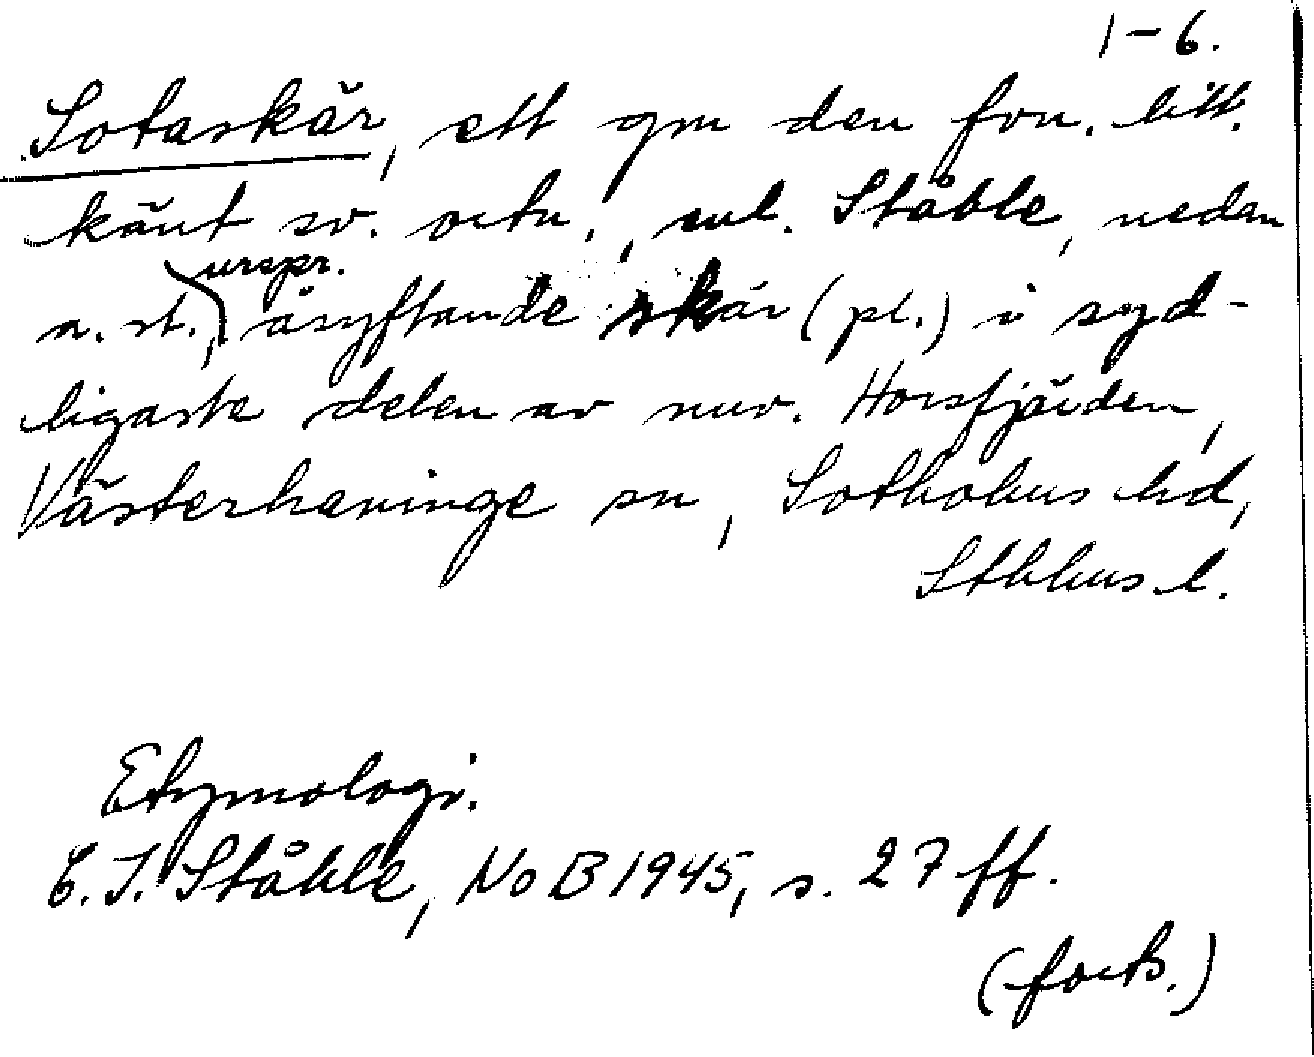 1-6.
Sotaskär, ett gm den fvn. litt.
känt sv. ortn., enl. Ståhle, nedan
urspr.
a. st., åsyftande skär (pl.) i syd-
ligaste delen av nuv. Horsfjärden,
Västerhaninge sn, Sotholms hd,
Sthlms l.
Etymologi.
C. I. Ståhle, NoB 1945, s. 27 ff.
(forts.)